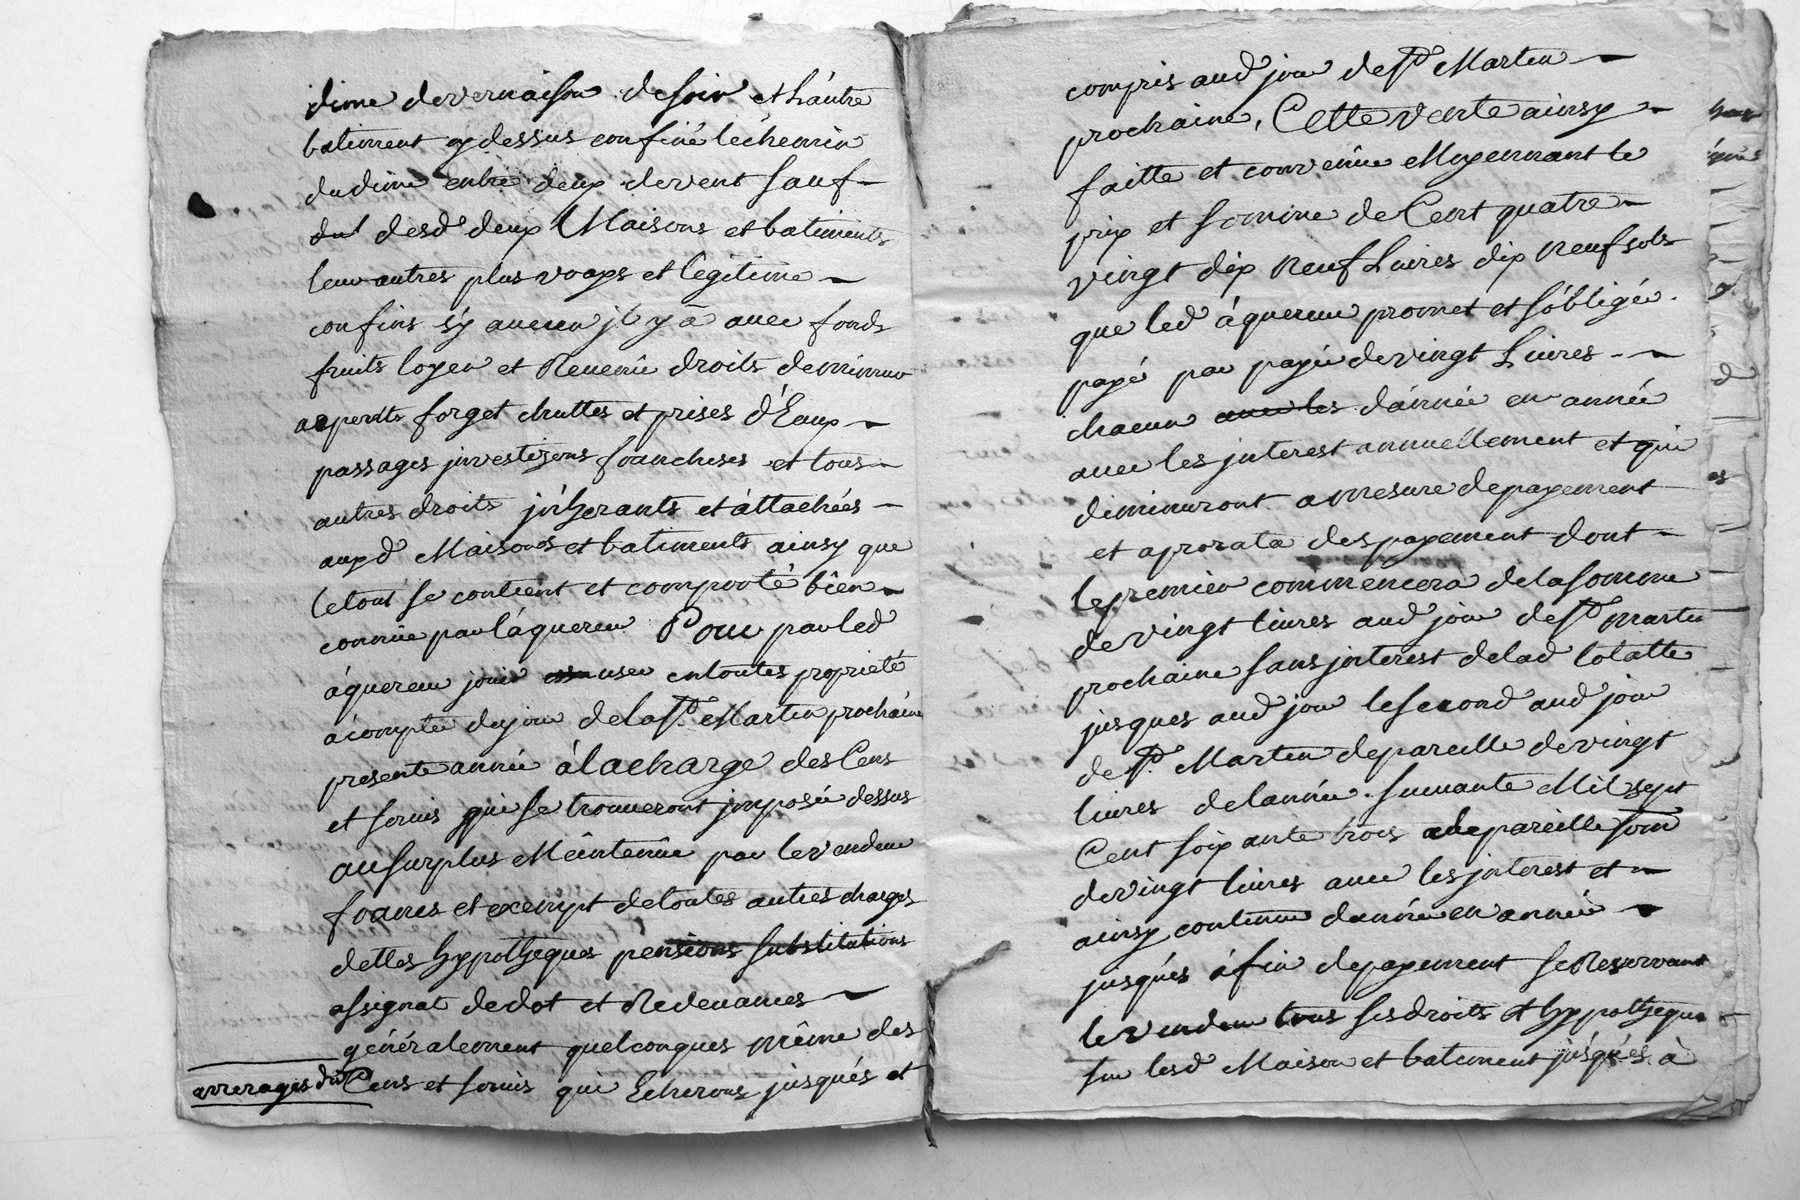 dime devernaison desoir et Lautre
batiment cy dessus confiné lechemin
dudime entre deux devent sauf
desd deux Maisons et batiments
leur autres plus vrays et legitime
confins sy aucun jl y à avec fonds
fruits loyer et Revenû droits
forget chuttes et prises d'Eaux
passages jnvestizons franchises et tous
autres droits jnherants et áttachées
auxd Maisons et batiments ainsy que
letout se contient et comporté bien
connüe par láquereur Pour par led
áquereur jouir user entoutes proprieté
ácompté dujour de la St. Martin prochaine
presente année álacharge des Cens
et servis qui se trouveront jmposée dessus
ausurplus Meintenüe par levendeur
francs et exempt detoutes autres charges
dettes hypotheques pensions substitutions
assignat de dot et Redevances
généralement quelconques même des
arrerages des Cens et servis qui Echerons jusqués et
compris aud jour de St Martin
prochaine, Cette vente ainsy
faitte et convenüe Moyennant le
prix et somme de Cent quatre
vingt dix neuf Livres dix neuf sols
que led áquereur promet et sóbligé
payé par payé devingt Livres
chacun avec les dánnée en année
avec les jnterest annuellement et qui
diminuront a mesure depayement
et aprorata despayement dont
lepremier commencera delasomme
devingt livres aud jour de St martin
prochaine sans jnterest delad totalle
jusques aud jour lesecond aud jour
de St. Martin depareille devingt
livres delannée suivante Mil sept
Cent soixante trois depareille som
devingt livres avec les jnterest et
ainsy continuer dannée en année
jusqués áfin depayement se Reservant
levendeur tous ses droits et hypotheque
sur lesd Maison et batiment jusqués à